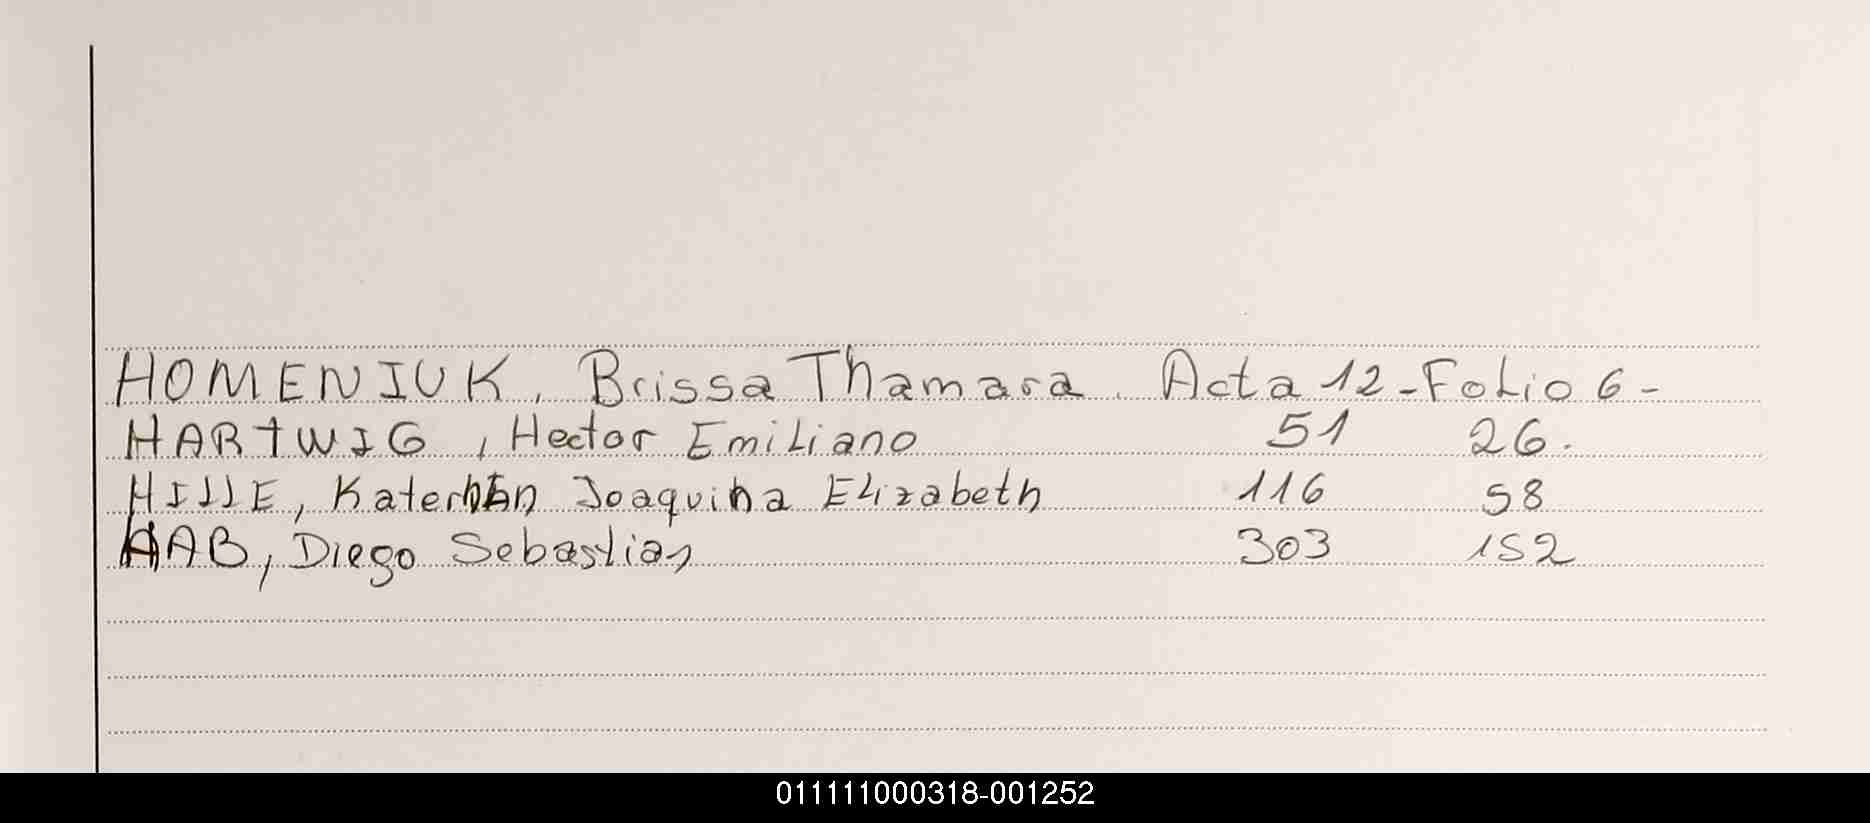 HOMENIUK, Brissa Thamara. Acta 12 - Folio 6 -
HARTWIG, Hector Emiliano 51 26.
HILLE, Joaquina Elizabeth 116 58
HAB, Diego Sebastian 303 152
011111000318-001252